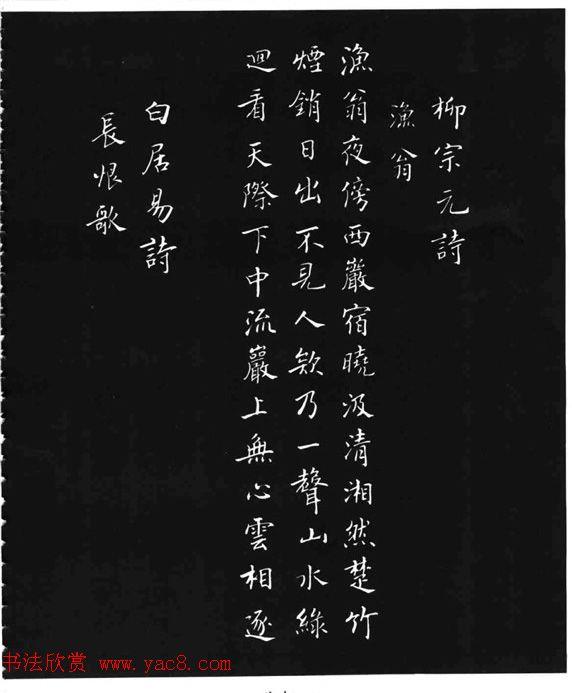 柳宗元詩
漁翁
漁翁夜傍西巖宿曉汲清湘然楚竹
煙銷日出不見人欸乃一聲山水綠
迴看天際下中流巖上無心雲相逐
白居易詩
長恨歌
书法欣赏 www.yac8.com